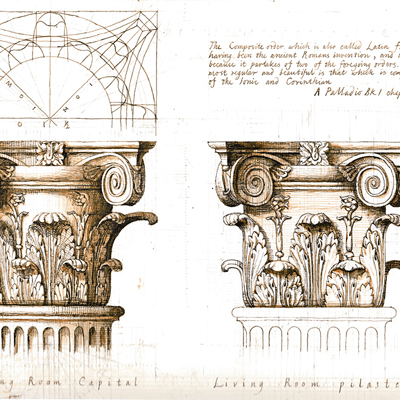 The Composite order which is also called Latin
having been the ancient Romans invention, and
because it partakes of two of the foregoing orders.
most regular and beautiful is that which is
of the Ionic and Corinthian
A Palladio BK I
Room Capital
Living Room